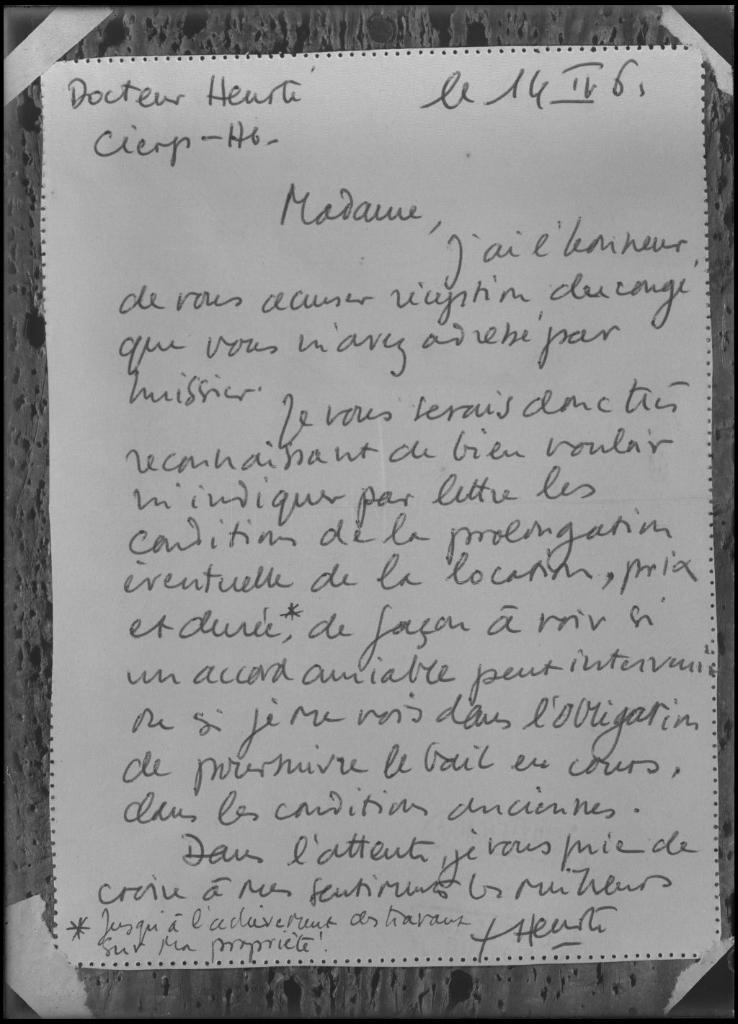 Docteur Heurté le 14 IV 61
Cierp - HG.
Madame,
j'ai l'honneur
de vous accuser réception du congé
que vous m'avez adressé par
huissier.
Je vous serais donc très
reconnaissant de bien vouloir
m'indiquer par lettre les
conditions de la prolongation
éventuelle de la location, prix
et durée,* de façon à voir si
un accord amiable peut intervenir
ou si je me vois dans l'obligation
de poursuivre le bail en cours,
dans les conditions anciennes.
Dans l'attente, je vous prie de
croire à mes sentiments les meilleurs
* Jusqu'à l'achèvement des travaux
sur ma propriété.
Heurté